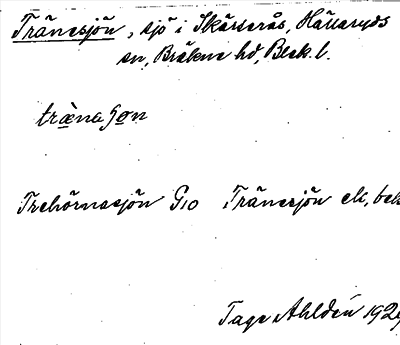 Tränesjön, sjö i Skärserås, Hällaryds
sn, Bräkne hd, Blek. l.
træ̀naʃøn
Trehörnasjön G10 Tränesjön ek, bek
Tage Ahldén 1929